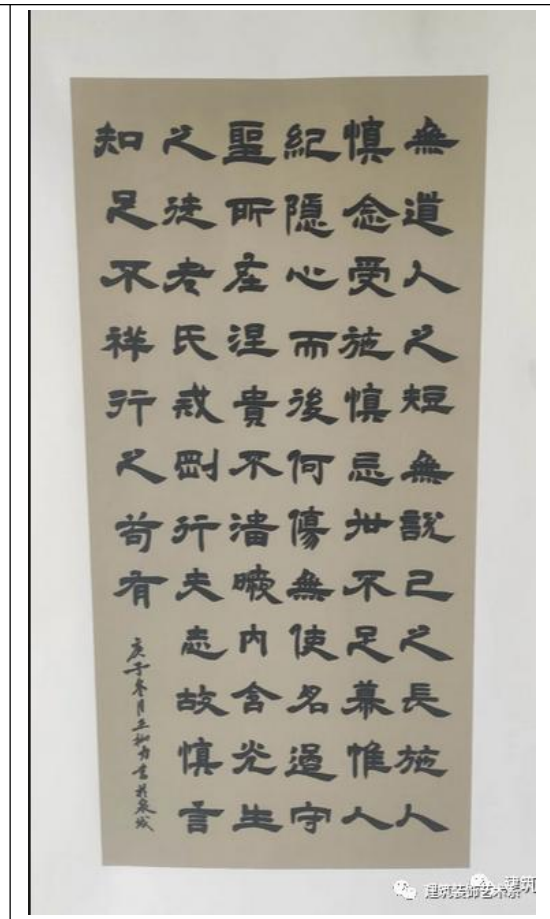 無道人之短無說己之長施人
慎念受施慎忌世不足慕惟人
紀隱心而後何傷無使名過守
聖所座涅貴不淄曖內含光生
之徒老氏戒剛行夫志故慎言
知足不祥行之苟有
庚子冬月書於泉城
建筑装饰艺术系
建筑